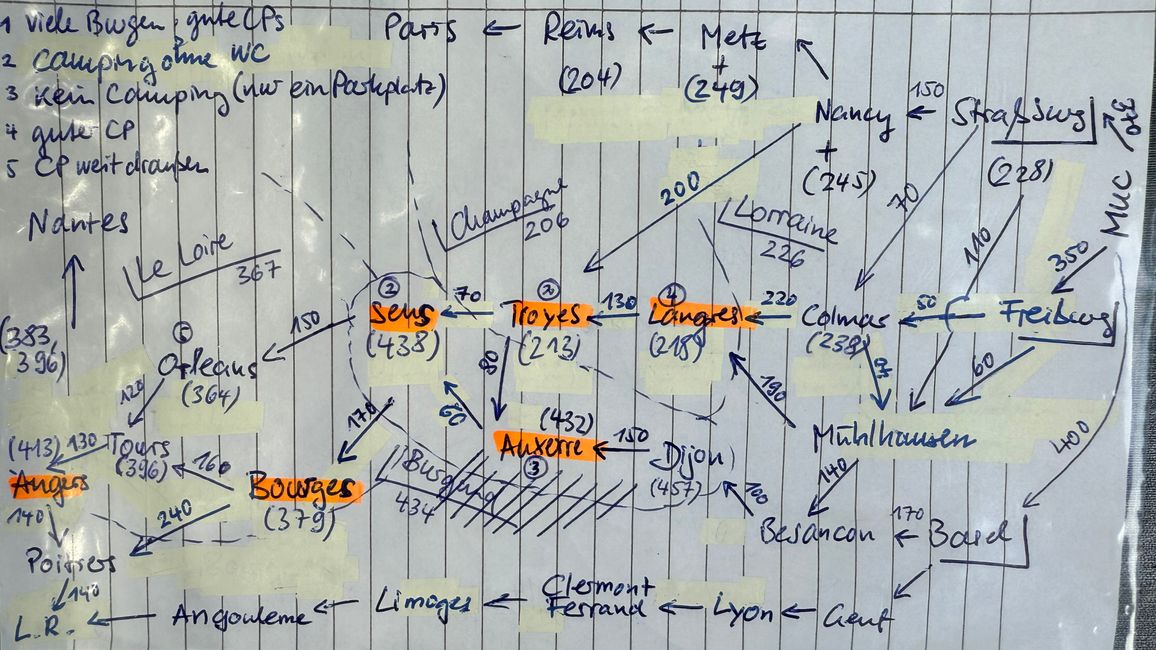 1 viele Burgen, gute CPs
2 Camping ohne WC
3 kein Camping (nur ein Parkplatz)
4 guter CP
5 CP weit draußen
Paris ← Reims ← Metz
(204)
+
(249)
Nancy ← 150 Straßburg
+
(245)
(228)
MUC
350
70
110
200
Nantes
Le Loire
367
Champagne
206
Lorraine
226
(383,
396)
② ② ④
Sens ← 70 Troyes ← 130 Langres ← 220 Colmar ← 50 Freiburg
(438) (213) (218) (238)
150
⑤
Orleans
(364)
120
80
60
190
60
400
170
(432)
(413) 130 Tours
(396)
Angers
160
Bourges
(379)
Burgund
434
Auxerre ← 150 Dijon
③
(457)
Mühlhausen
140
100
140
240
Besancon ← 170 Basel
Poitiers
140
L.R. ← Angouleme ← Limoges ← Clermont Ferrand ← Lyon ← Genf